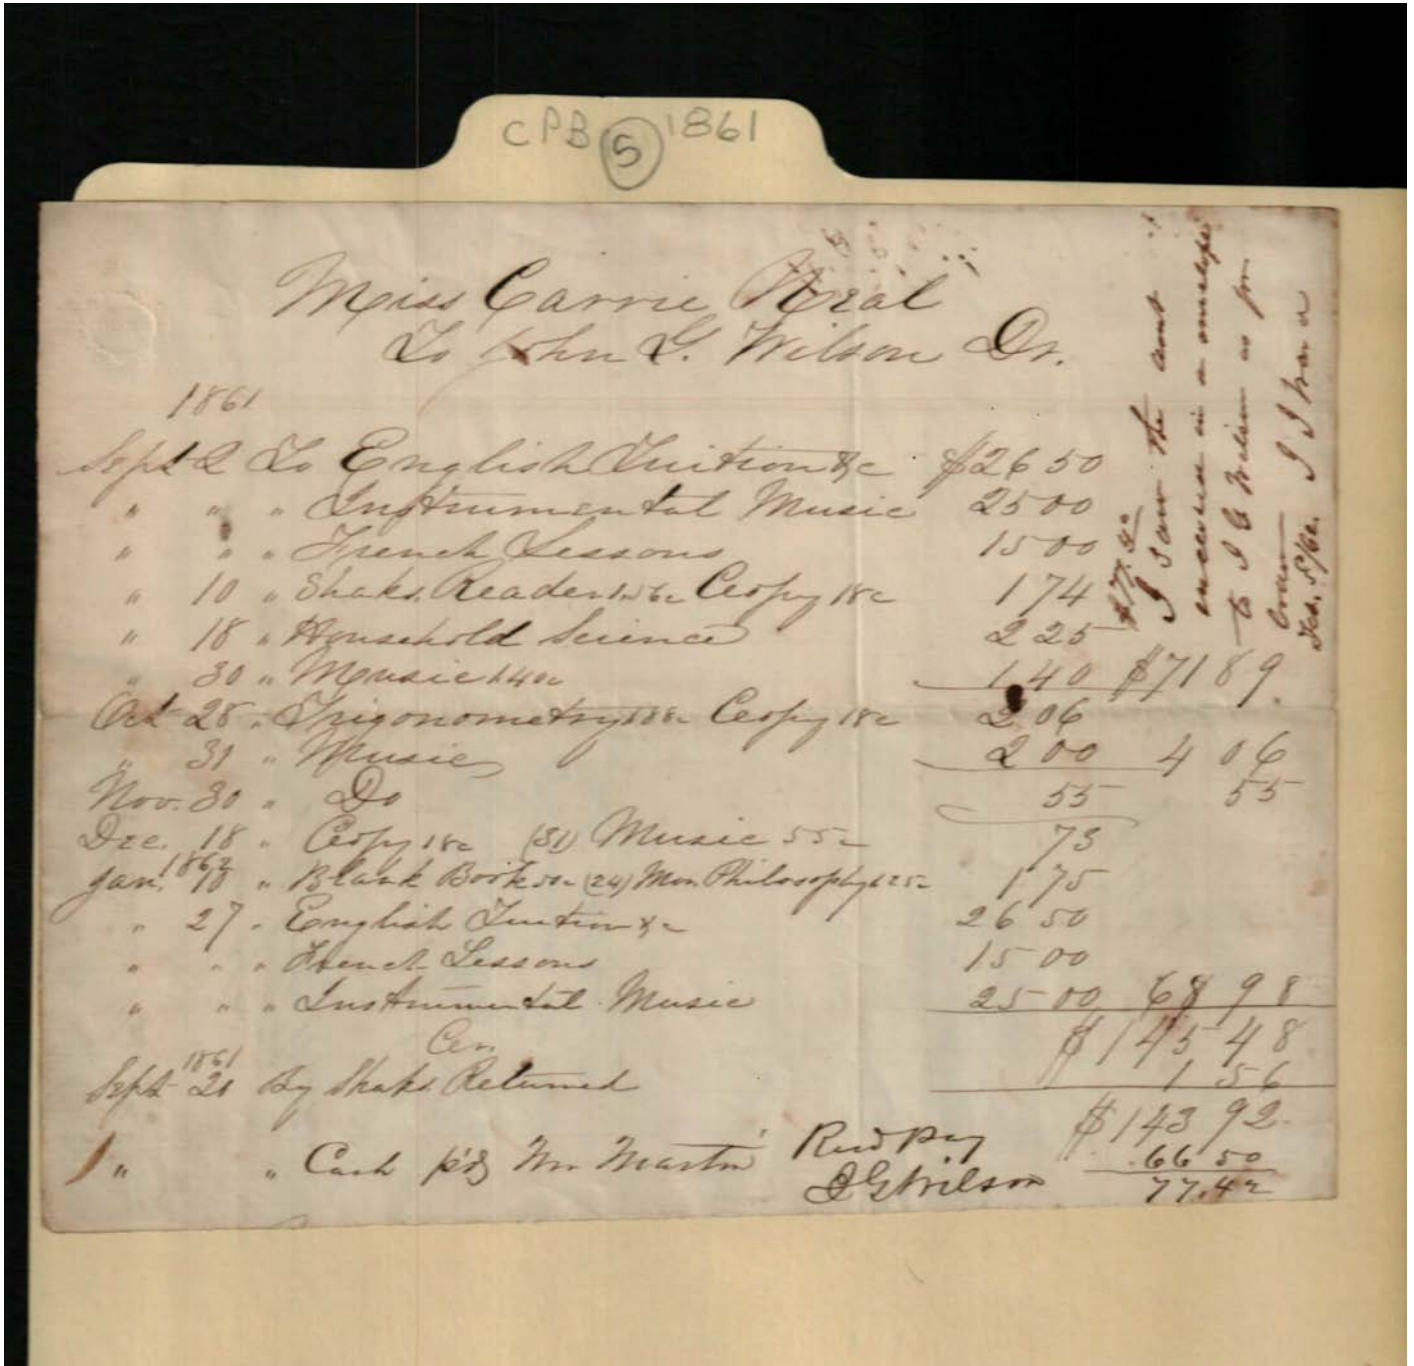 CPB 5 1861
Miss Carrie Neal
To John G. Wilson Dr.
1861
Sept 2 To English Tuition &c $26 50
" " " Instrumental Music 25 00
" " " French Lessons 15 00
" 10 " Shaks. Reader 1.56c Copy 18c 1 74
" 18 " Household Science 2 25
" 30 " Music 140c 1 40 $71 89
Oct 28 " Trigonometry 188c Copy 18c 2 06
" 31 " Music 2 00 4 06
Nov. 30 " Do 55 55
Dec. 18 " Copy 18c (31) Music 55c 73
1862
Jan. 18 " Blank Book 50c (24) Mon. Philosophy 1.25c 1 75
" 27 " English Tuition &c 26 50
" " " French Lessons 15 00
" " " Instrumental Music 25 00 68 98
Cr. $145 48
1861
Sept 21 By Shaks. Returned 1 56
$143 92
" " Cash p'd Mr Martin Recd pay 66 50
J G Wilson 77.42
$77.42
I saw the amt
enclosed in a envelope
to J G Wilson as pr
Feb. 5/62.